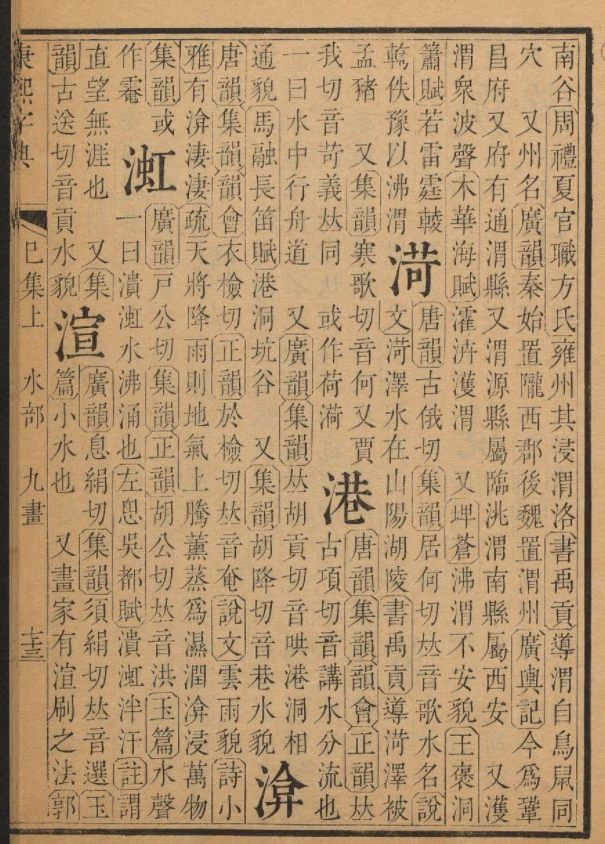 南谷周禮夏官職方氏雍州其浸渭洛書禹貢導渭自鳥鼠同
穴　又州名廣韻秦始置隴西郡後魏置渭州廣輿記今爲鞏
昌府又府有通渭縣又渭源縣屬臨洮渭南縣屬西安　又濩
渭衆波聲木華海賦㶖泋濩渭　又埤蒼沸渭不安貌王褒洞
簫賦若雷霆輘
輷佚豫以沸渭
渮
唐韻古俄切集韻居何切𠀤音歌水名說
文渮澤水在山陽湖陵書禹貢導菏澤被
孟豬　又集韻寒歌切音何又賈
我切音苛義𠀤同　或作荷菏
港
唐韻集韻韻會正韻𠀤
古項切音講水分流也
一曰水中行舟道　又廣韻集韻𠀤胡貢切音哄港洞相
通貌馬融長笛賦港洞坑谷　又集韻胡降切音巷水貌
渰
唐韻集韻韻會衣檢切正韻於檢切𠀤音奄說文雲雨貌詩小
雅有渰淒淒疏天將降雨則地氣上騰薰蒸爲濕潤渰浸萬物
集韻或
作䨄
渱
廣韻戸公切集韻正韻胡公切𠀤音洪玉篇水聲
一曰潰渱水沸涌也左思吳都賦潰渱泮汗註謂
直望無涯也　又集
韻古送切音貢水貌
渲
廣韻息絹切集韻須絹切𠀤音選玉
篇小水也　又畫家有渲刷之法郭
康熙字典　巳集上　水部　九畫　十三